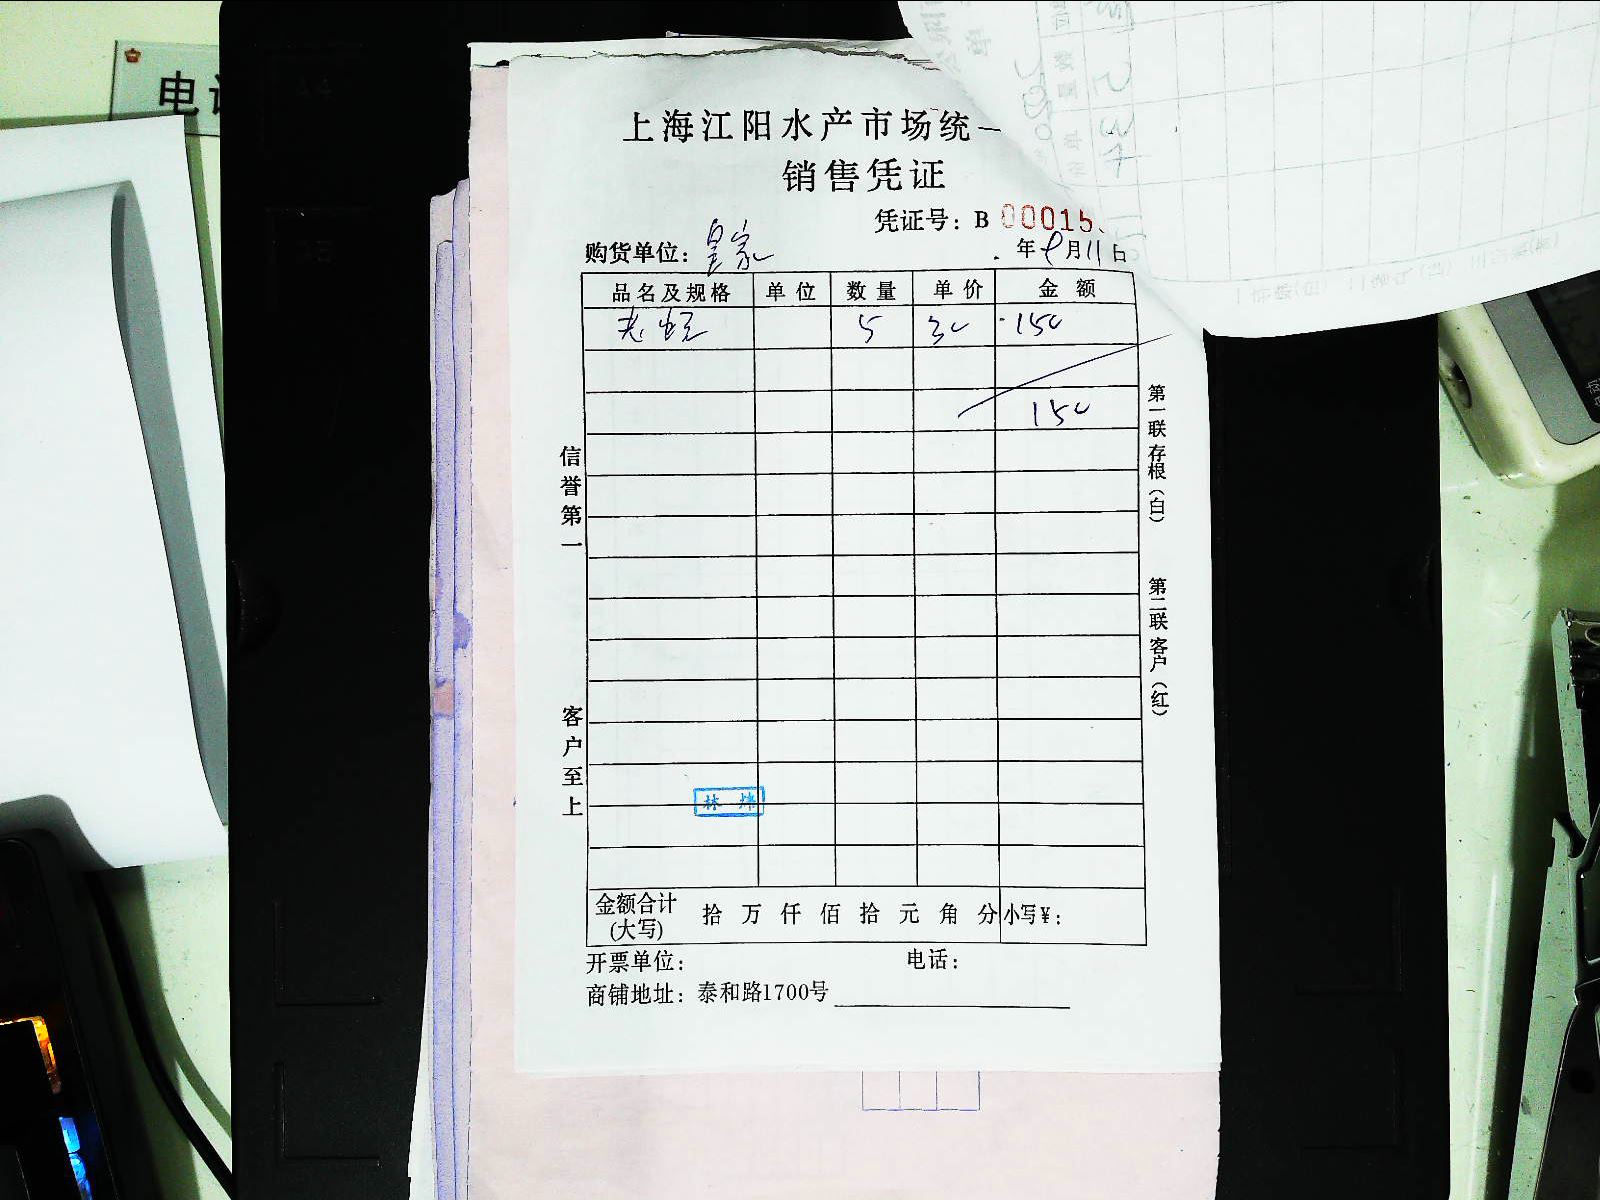 电
上海江阳水产市场统一
销售凭证
凭证号：B 00015
购货单位：皇家
年9月11日
品名及规格 单位 数量 单价 金额
老蚬 5 30 150
150
信誉第一
客户至上
第一联存根（白）
第二联客户（红）
林
金额合计(大写) 拾 万 仟 佰 拾 元 角 分 小写¥：
开票单位： 电话：
商铺地址：泰和路1700号